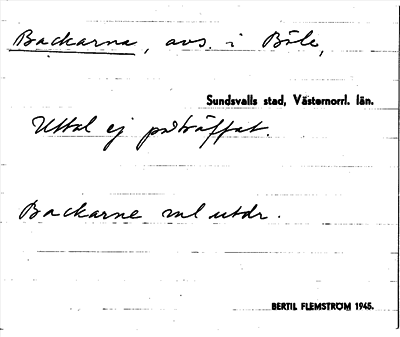 Backarna, avs. i Böle,
Sundsvalls stad, Västernorrl. län.
Uttal ej påträffat.
Backarne enl utdr.
BERTIL FLEMSTRÖM 1945.